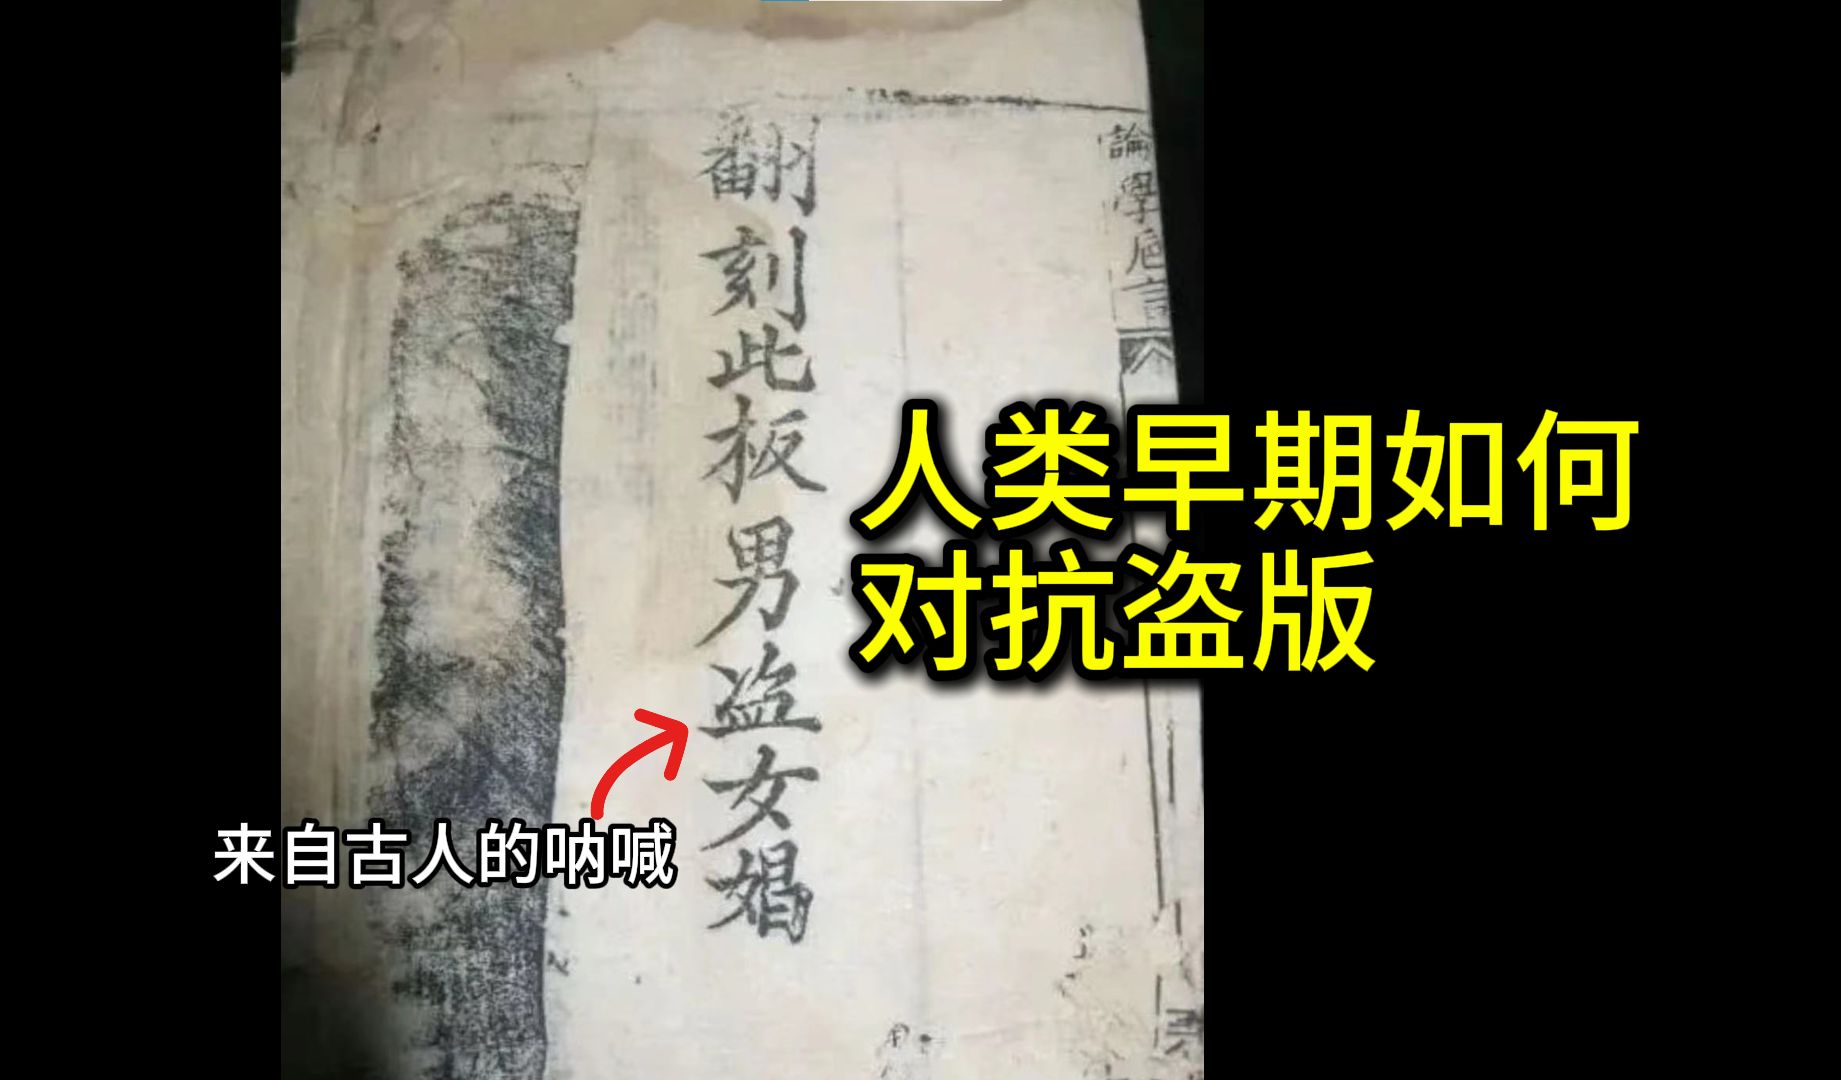 翻刻此板男盗女娼
論學巵言
人类早期如何
对抗盗版
来自古人的呐喊